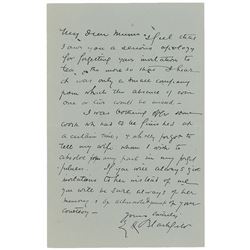 My Dear Munn I feel that
I owe you a serious apology
for forgetting your invitation to
tea, the more so since I hear
it was only a small company
from which the absence of even
one or two would be missed.
I was looking after some
work which had to be finished at
a certain time, & wholly forgot to
tell my wife whom I wish to
absolve from any part in my forget-
fulness. If you will always give
invitations to her instead of me
you will be sure always of her
memory & my acknowledgment of your
courtesy
Yours